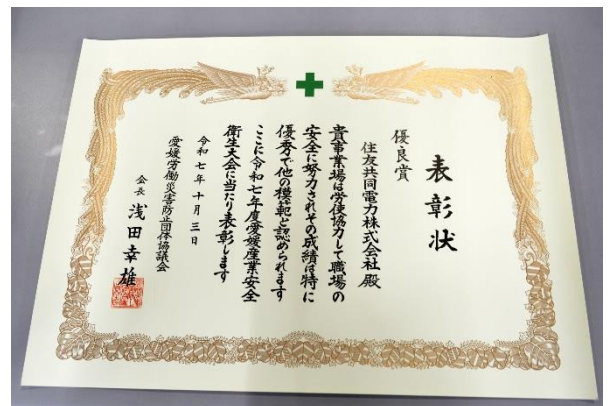 表彰状
優良賞
住友共同電力株式会社殿
貴事業場は労使協力して職場の
安全に努力されその成績は特に
優秀で他の模範と認められます
ここに令和七年度愛媛産業安全
衛生大会に当たり表彰します
令和七年十月三日
愛媛労働災害防止団体協議会
会長 浅田幸雄